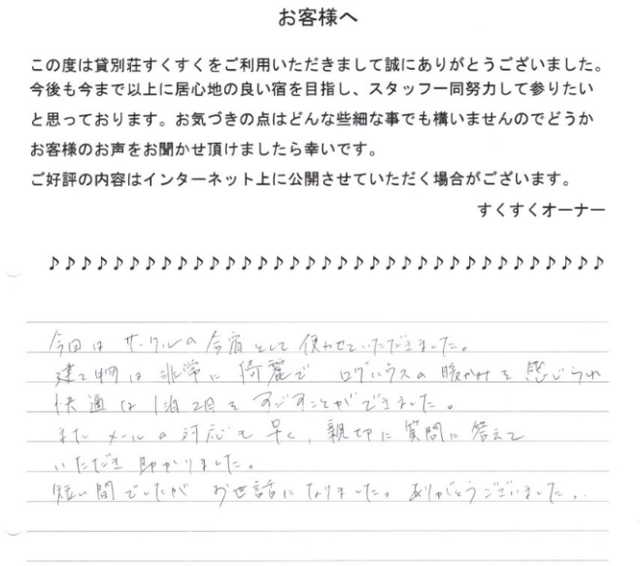 お客様へ
この度は貸別荘すくすくをご利用いただきまして誠にありがとうございました。
今後も今まで以上に居心地の良い宿を目指し、スタッフ一同努力して参りたい
と思っております。お気づきの点はどんな些細な事でも構いませんのでどうか
お客様のお声をお聞かせ頂けましたら幸いです。
ご好評の内容はインターネット上に公開させていただく場合がございます。
すくすくオーナー
♪♪♪♪♪♪♪♪♪♪♪♪♪♪♪♪♪♪♪♪♪♪♪♪♪♪♪♪♪♪♪♪♪♪♪
今回は サークルの合宿として使わせていただきました。
建て物は非常に綺麗で ログハウスの暖かみを感じられ
快適な1泊2日をすごすことができました。
また メールの対応も早く、親切に質問に答えて
いただき助かりました。
短い間でしたが お世話になりました。ありがとうございました。